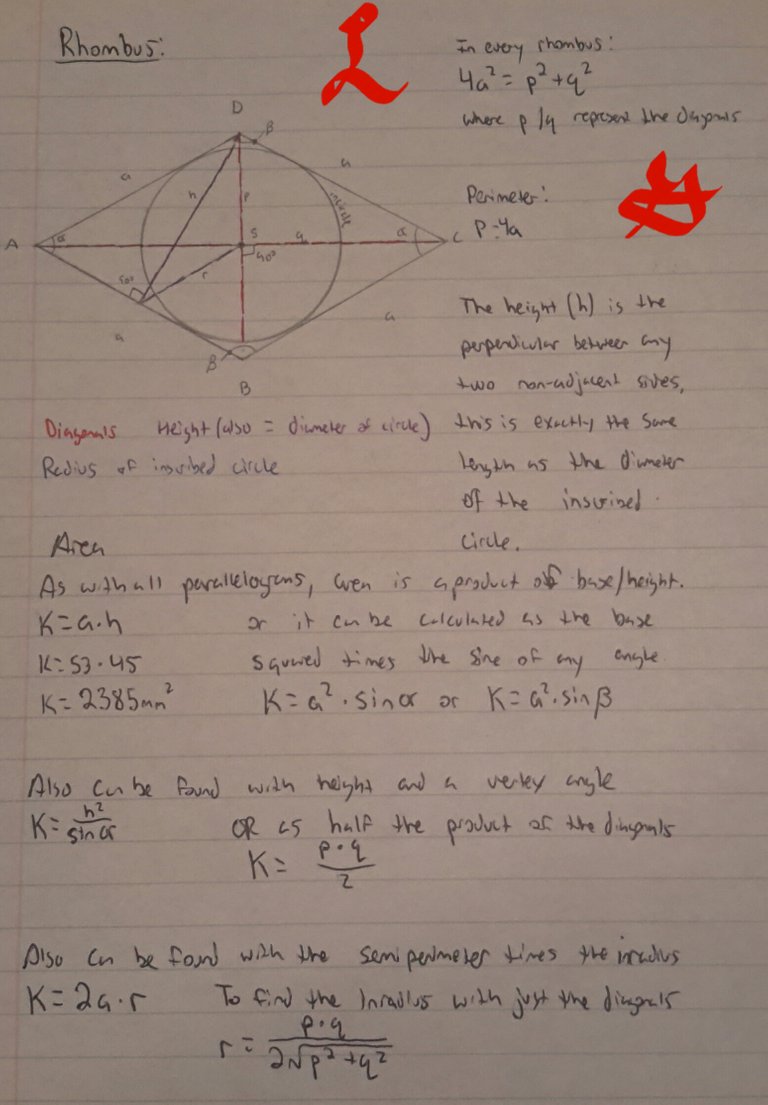 Rhombus:
L
In every rhombus:
4a² = p² + q²
where p/q represent the diagonals
Perimeter:
P = 4a
y
D
β
a
a
h
p
incircle
A
α
S
q
α
C
90°
90°
r
a
a
β
B
The height (h) is the
perpendicular between any
two non-adjacent sides,
this is exactly the same
length as the diameter
of the inscribed
circle.
Diagonals Height (also = diameter of circle)
Radius of inscribed circle
Area
As with all parallelograms, area is a product of base/height.
K = a·h or it can be calculated as the base
K = 53·45 squared times the sine of any angle
K = 2385mm² K = a²·sinα or K = a²·sinβ
Also can be found with height and a vertex angle
K = h²/sinα OR as half the product of the diagonals
K = p·q/2
Also can be found with the semiperimeter times the inradius
K = 2a·r To find the Inradius with just the diagonals
r = p·q/2√p²+q²